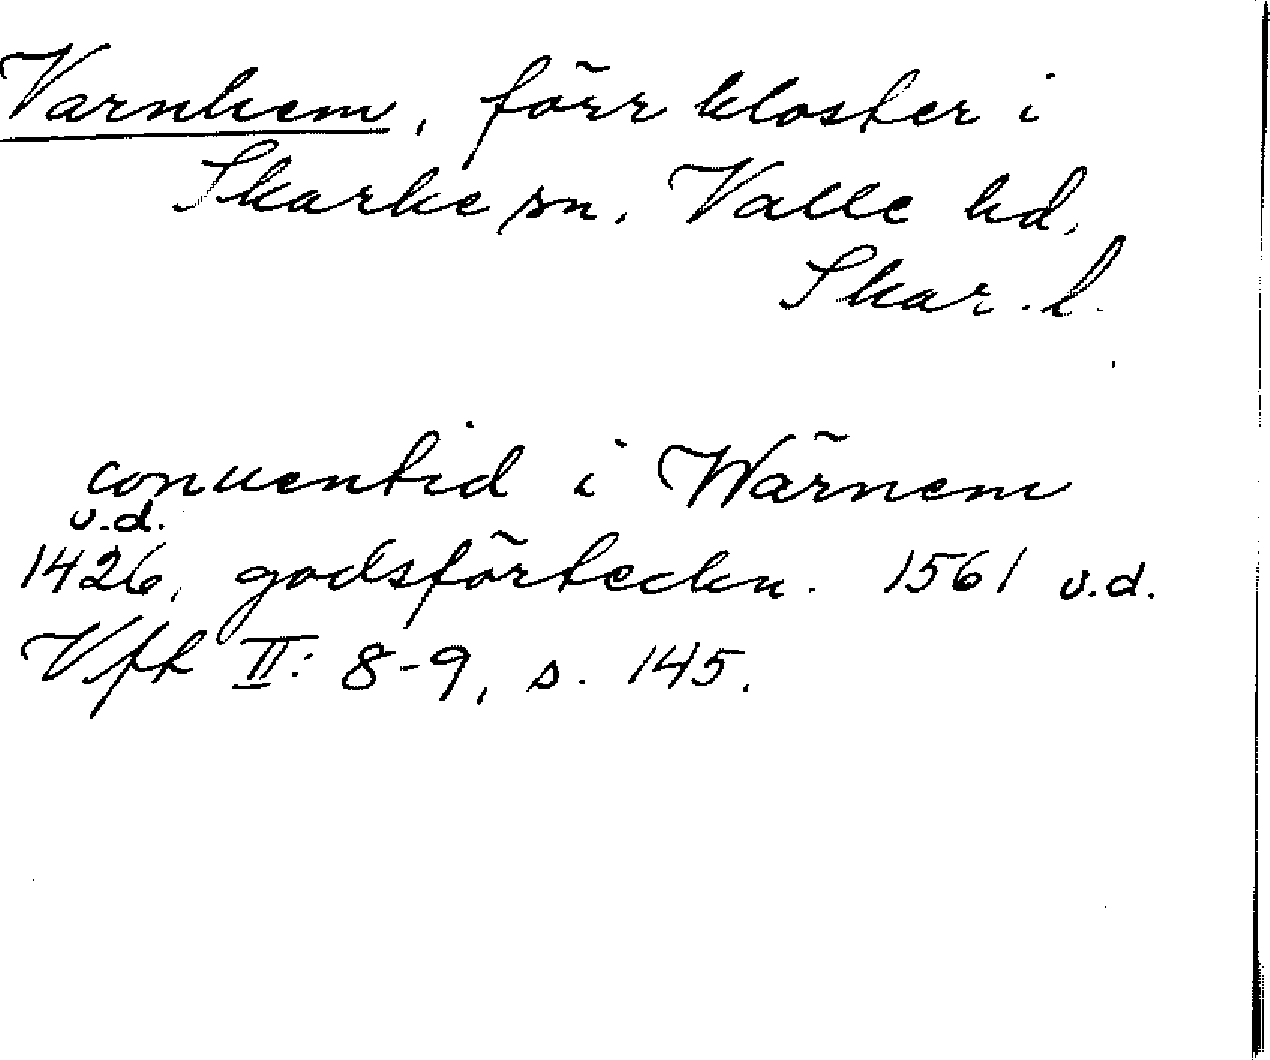 Varnhem, förr kloster i
Skarke sn. Valle hd.
Skar. l.
conuentid i Wärnem
u.d.
1426, godsförteckn. 1561 u.d.
Vfh II: 8-9, s. 145.